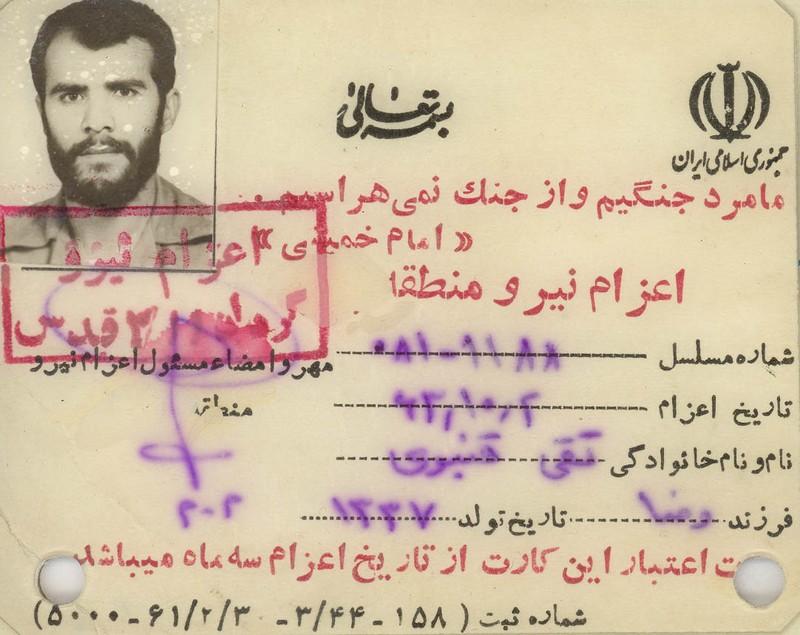 بسمه تعالی
جمهوری اسلامی ایران
مامرد جنگیم و از جنك نمی هراسیم
« امام خمینی »
اعزام نیرو منطقه
اعزام نیرو
۲ قدس
شماره مسلسل
مهر و امضاء مسئول اعزام نیرو
تاریخ اعزام
منطقه
نام و نام خانوادگی تقی قنبری
فرزند رضا تاریخ تولد ۱۳۳۷
اعتبار این کارت از تاریخ اعزام سه ماه میباشد
شماره ثبت ( ۱۵۸ - ۳/۴۴ - ۶۱/۲/۳ - ۵۰۰۰)